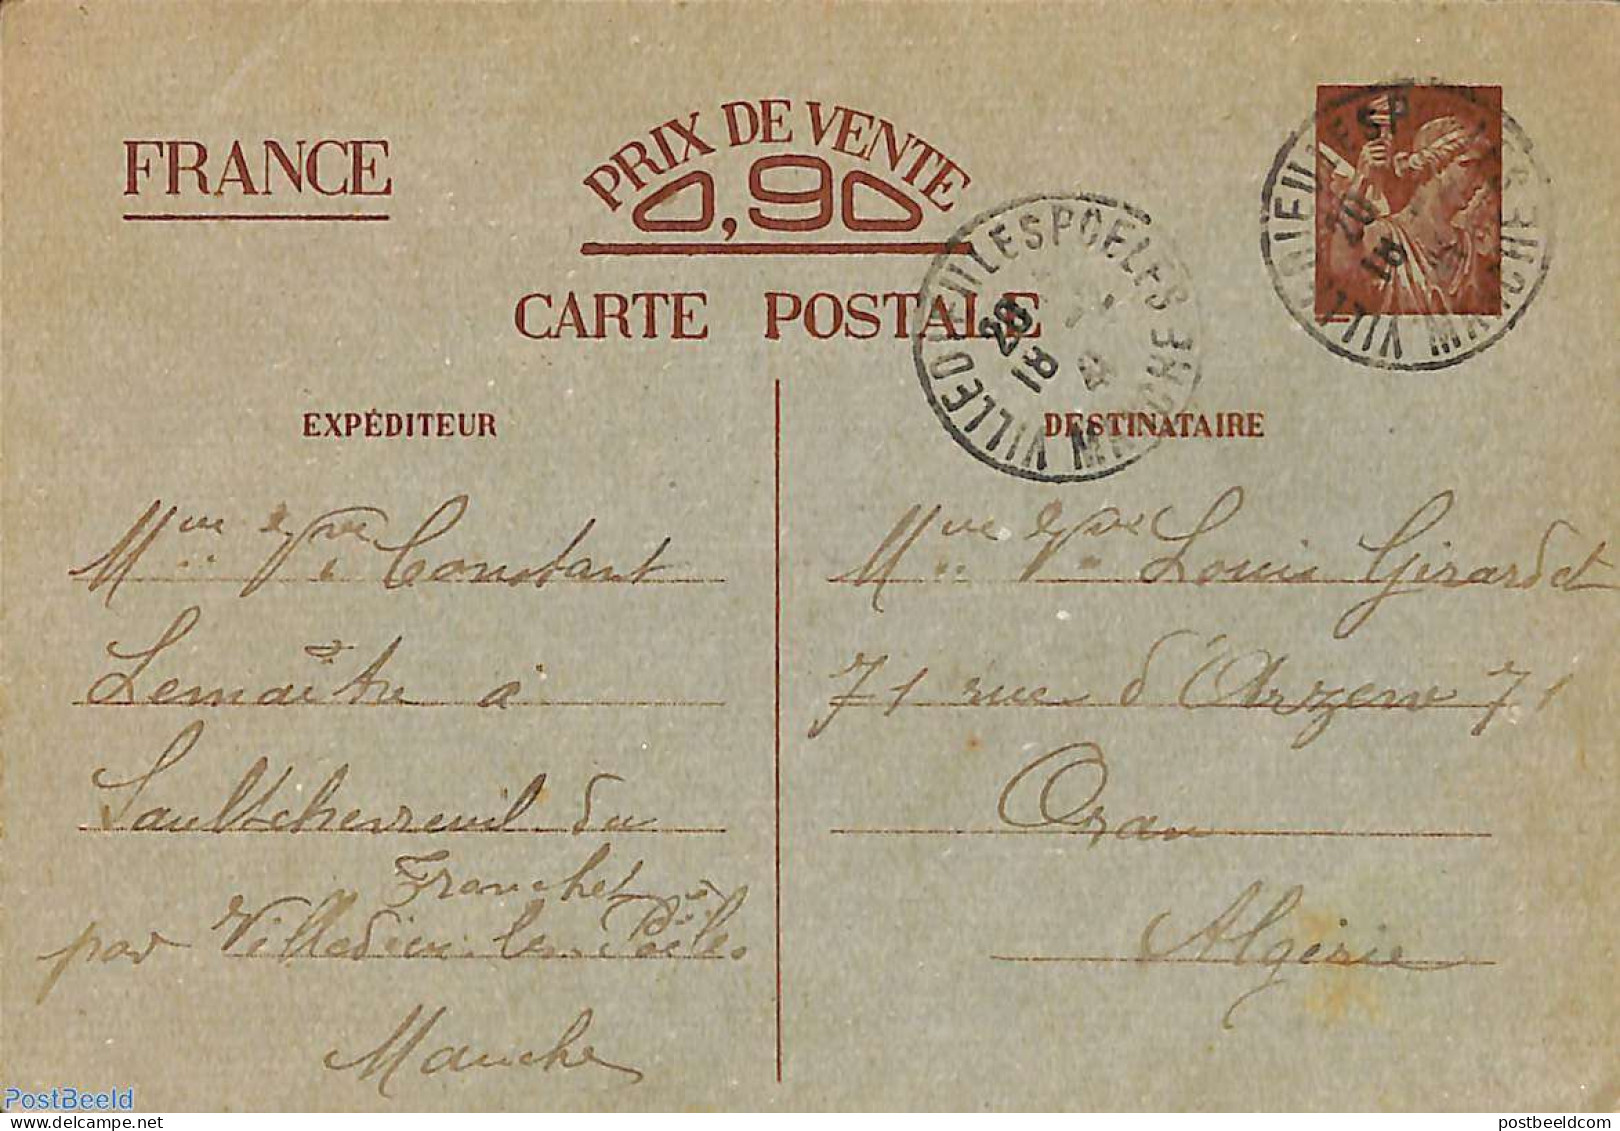 FRANCE
PRIX DE VENTE
0,90
CARTE POSTALE
EXPÉDITEUR
Mme Vve Constant
Lemaître à
Saultchevreuil du
Tronchet
par Villedieu les Poêles
Manche
DESTINATAIRE
Mme Vve Louis Girardet
71 rue d'Arzew 71
Oran
Algérie
VILLEDIEU LES POELES
MANCHE
20
18
VILLEDIEU LES POELES
MANCHE
20
18
PostBeeld
postbeeldcom